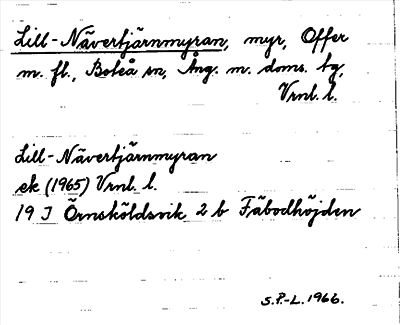 Lill-Nävertjärnmyran, myr, Offer
m. fl., Boteå sn, Ång. m. doms. tg,
Vrnl. l.
Lill-Nävertjärnmyran
ek (1965) Vrnl. l.
19 J Örnsköldsvik 2 b Fäbodhöjden
S.P.-L. 1966.